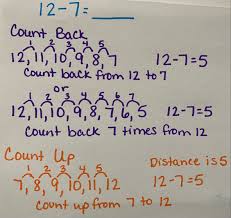 12-7=____
Count Back
1 2 3 4 5
12, 11, 10, 9, 8, 7 12-7=5
Count back from 12 to 7
or
1 2 3 4 5 6 7
12, 11, 10, 9, 8, 7, 6, 5 12-7=5
Count back 7 times from 12
Count Up
1 2 3 4 5 Distance is 5
7, 8, 9, 10, 11, 12 12-7=5
Count up from 7 to 12